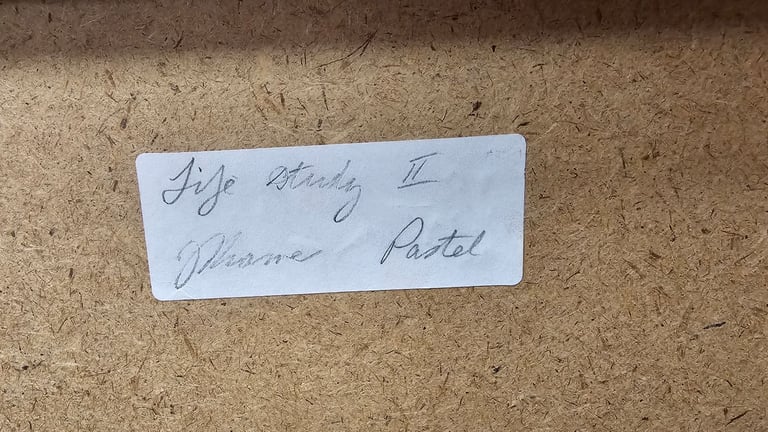 Life Study II
Pastel